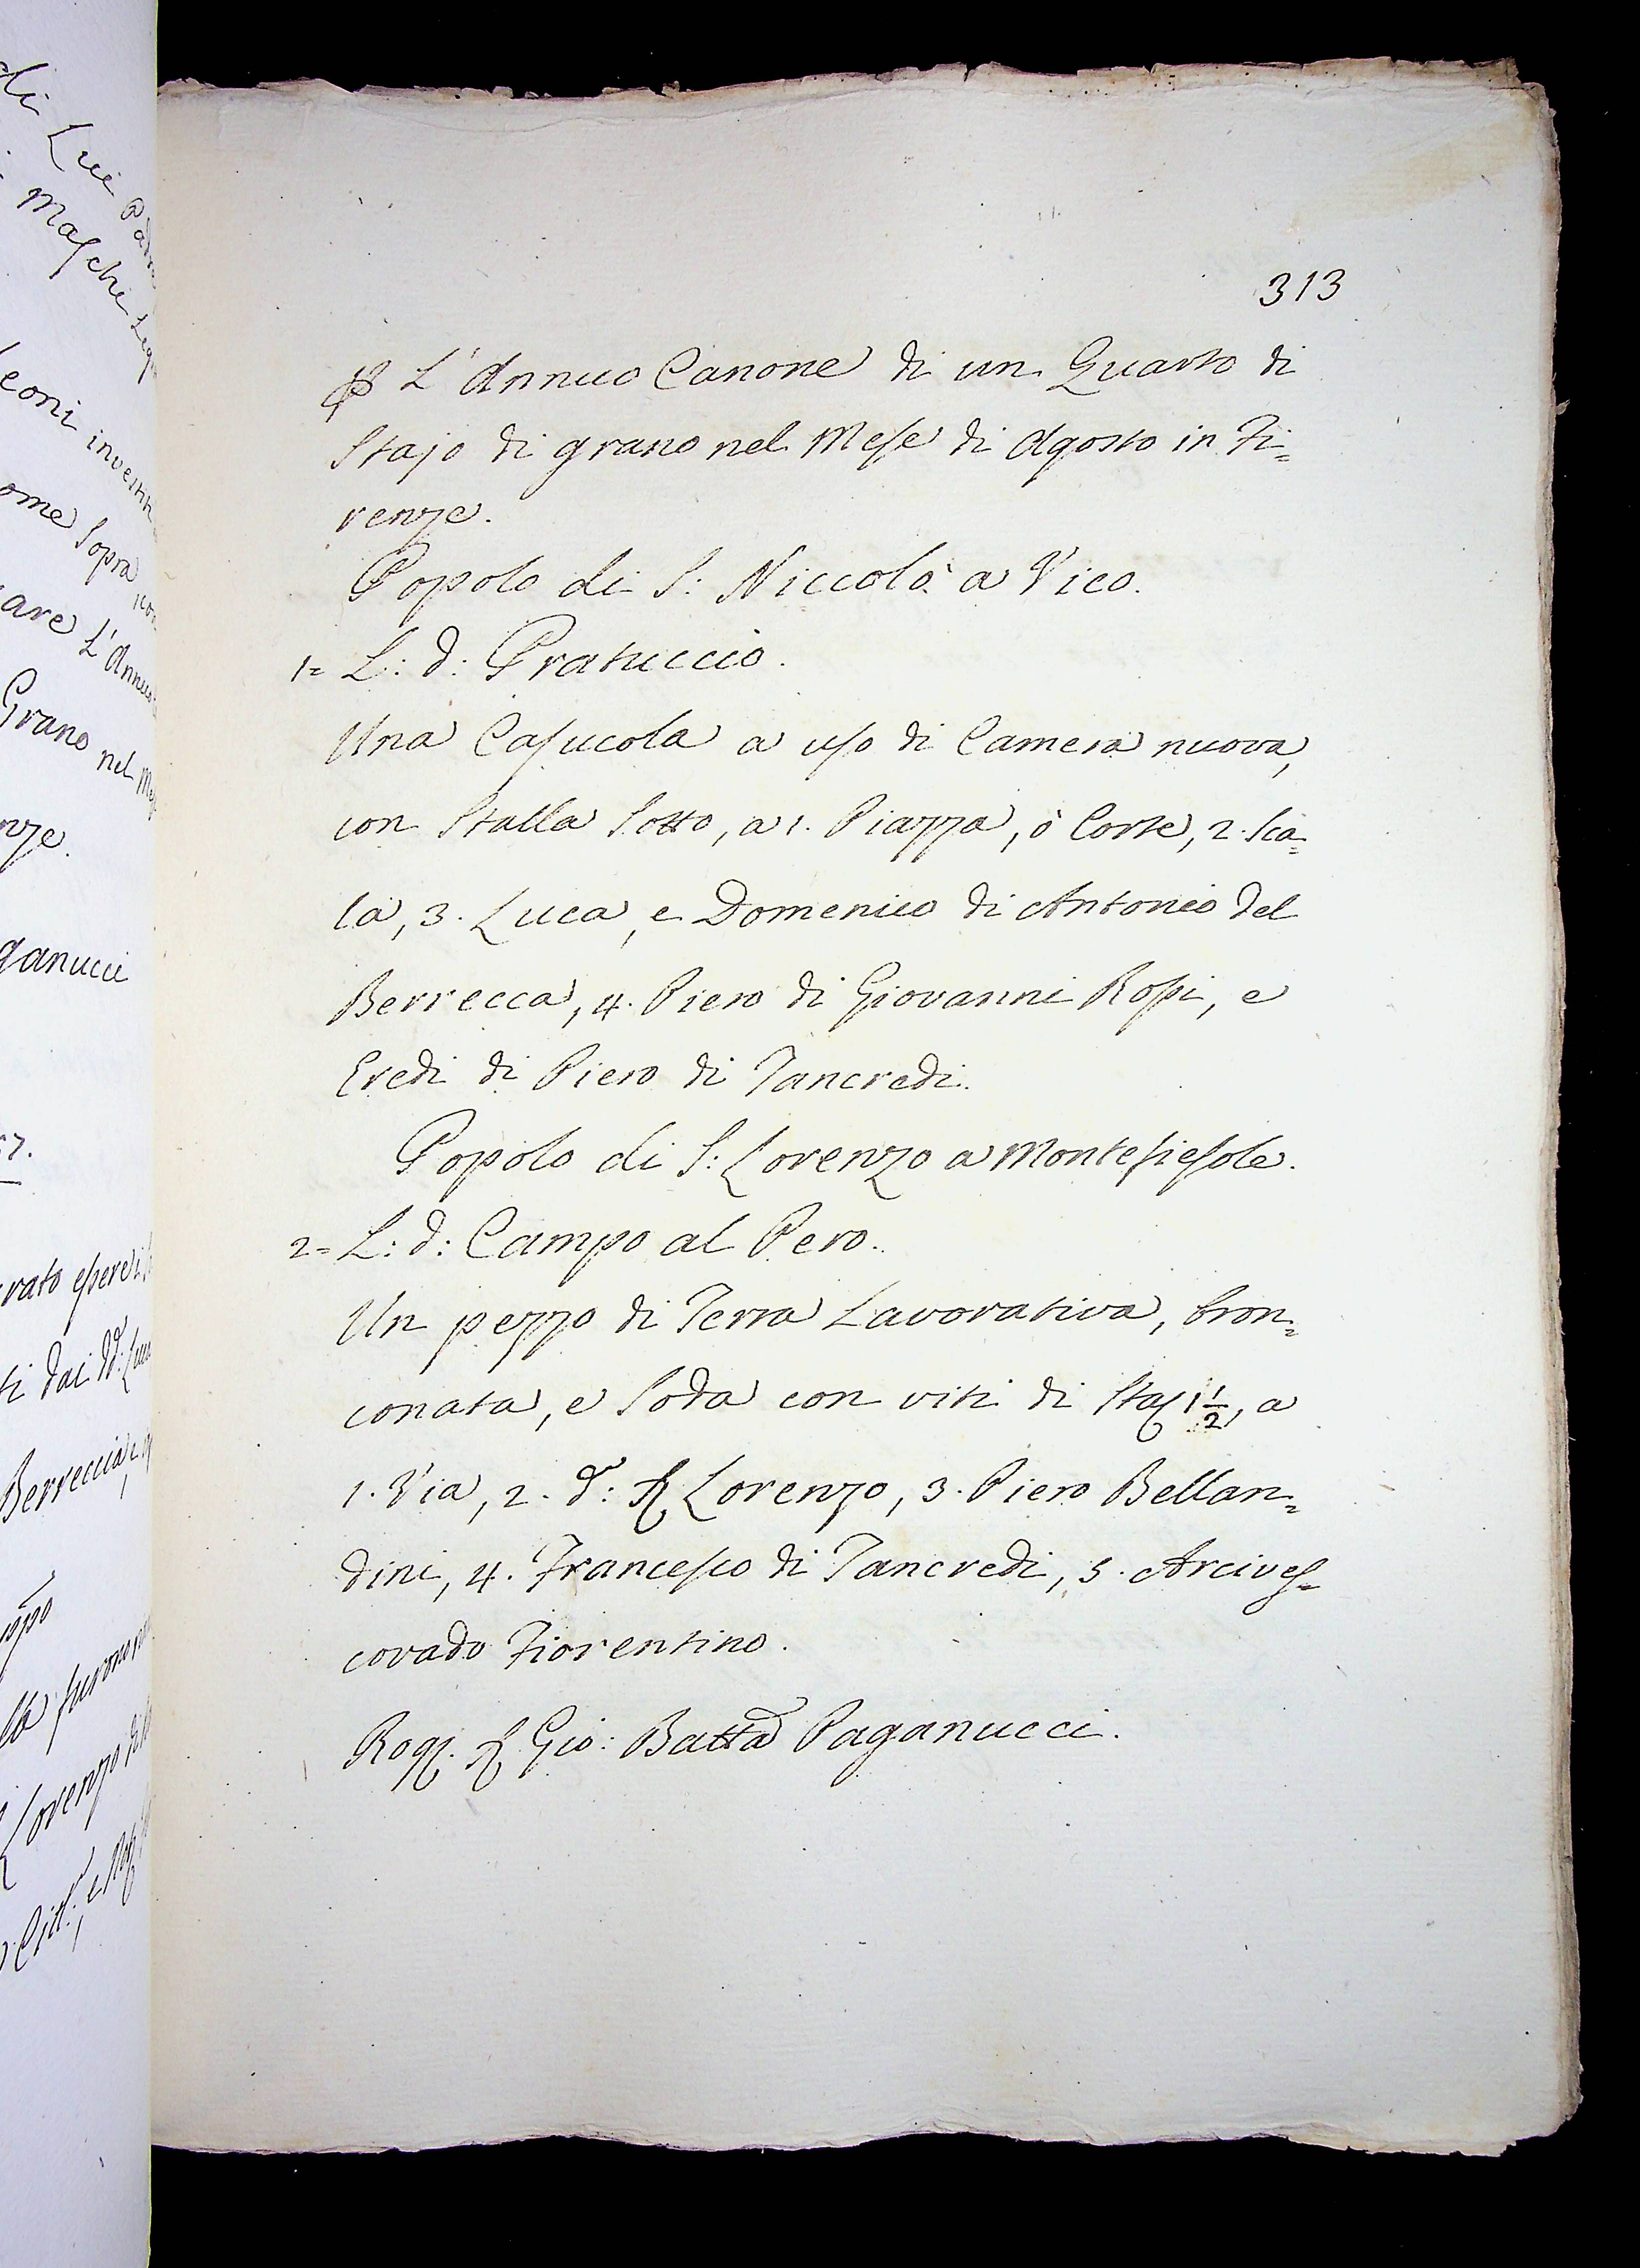 313
p L'Annuo Canone di un Quarto di
Stajo di grano nel Mese di Agosto in Fi=
renze.
Popolo di S: Niccolò a Vico.
1= L: d: Pratuccio.
Una Casucola a uso di Camera nuova,
con Stalla Sotto, a 1. Piazza, ò Corte, 2. Sca=
la, 3. Luca, e Domenico di Antonio del
Berrecca, 4. Piero di Giovanni Rossi, e
Eredi di Piero di Tancredi.
Popolo di S: Lorenzo a Montefiesole.
2= L: d: Campo al Pero.
Un pezzo di Terra Lavorativa, bron=
conata, e Soda con viti di Sta 1 1/2, a
1. Via, 2. d:º Lorenzo, 3. Piero Bellan=
dini, 4. Francesco di Tancredi, 5. Arcives=
covado Fiorentino.
Rog. Gio: Batta Paganucci.
di Lui
Maschi
investiti
ome Sopra
are L'Annuo
Grano nel
nze.
ganucci
57.
rato essere
ti dai dd:
Berreccia
furono
Lorenzo